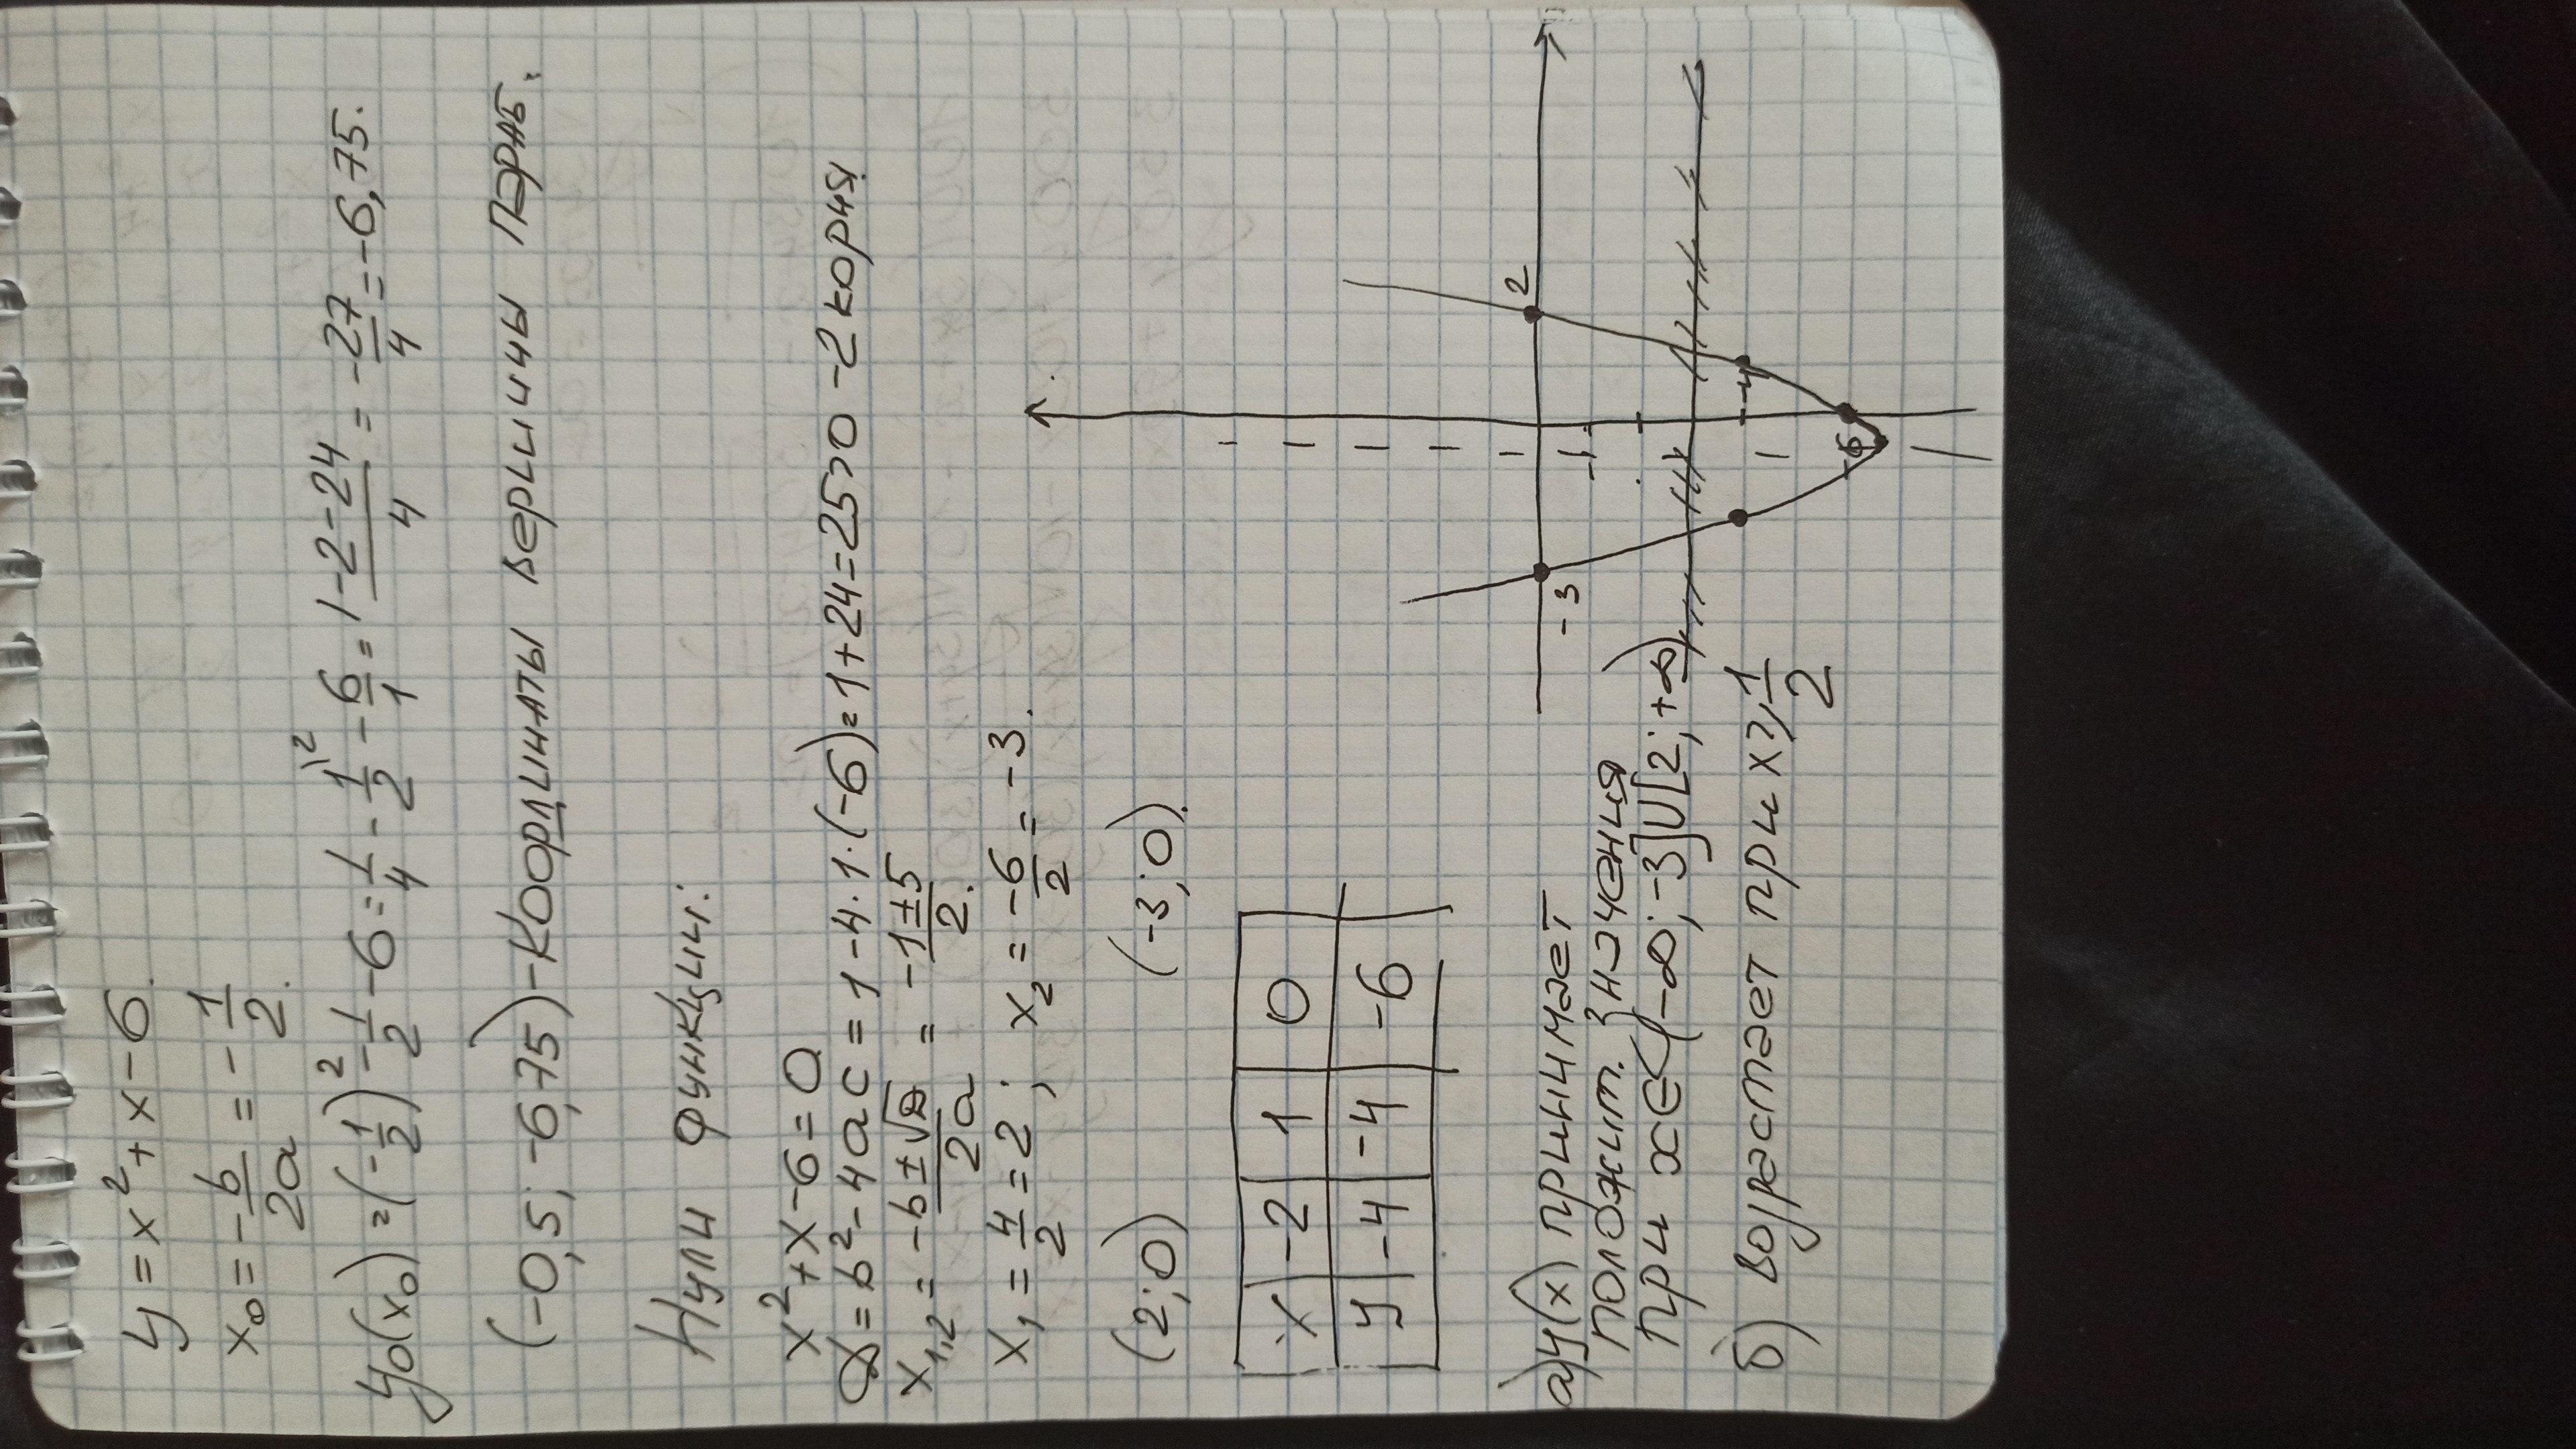 y = x² + x - 6.
x₀ = -b/2a = -1/2.
y₀(x₀) = (-1/2)² - 1/2 - 6 = 1/4 - 1/2\² - 6/1 = 1-2-24/4 = -27/4 = -6,75.
(-0,5; -6,75) - Координаты вершины параб.
Нули функции:
x² + x - 6 = 0
D = b² - 4ac = 1 - 4·1·(-6) = 1 + 24 = 25 > 0 - 2 корня
x₁,₂ = -b±√D/2a = -1±5/2.
x₁ = 4/2 = 2; x₂ = -6/2 = -3.
(2; 0) (-3; 0).
x -2 1 0
y -4 -4 -6
2
-3
-1
-4
-6
а) y(x) принимает
полож т. значения
при x∈(-∞; -3]∪[2; +∞)
б) возрастает при x ≥ 1/2